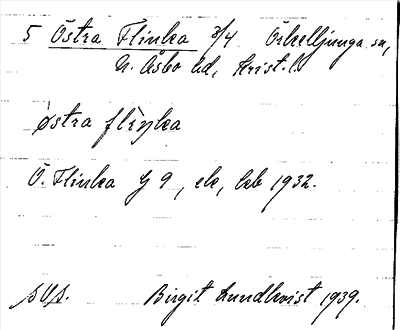 5 Östra Flinka 3/4 Örkelljunga sn,
N. Åsbo hd, Krist. l.
østra flìŋka
Ö. Flinka G 9, ek, lab 1932.
Birgit Lundkvist 1939.